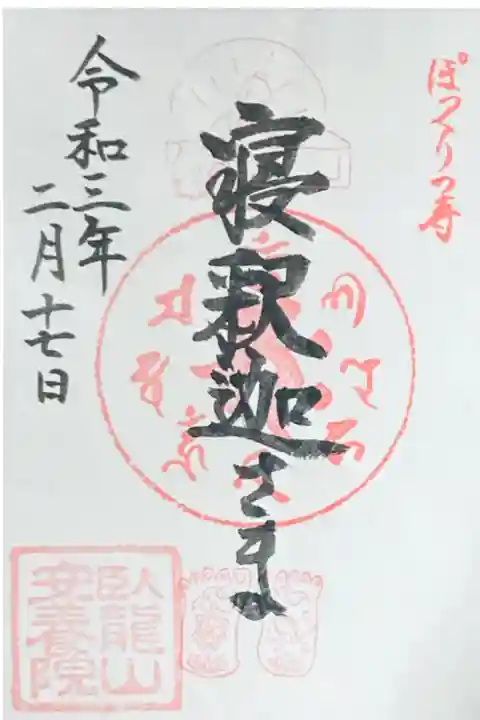 ぽっくりの寺
寝釈迦さま
令和三年
二月十七日
臥龍山
安養院